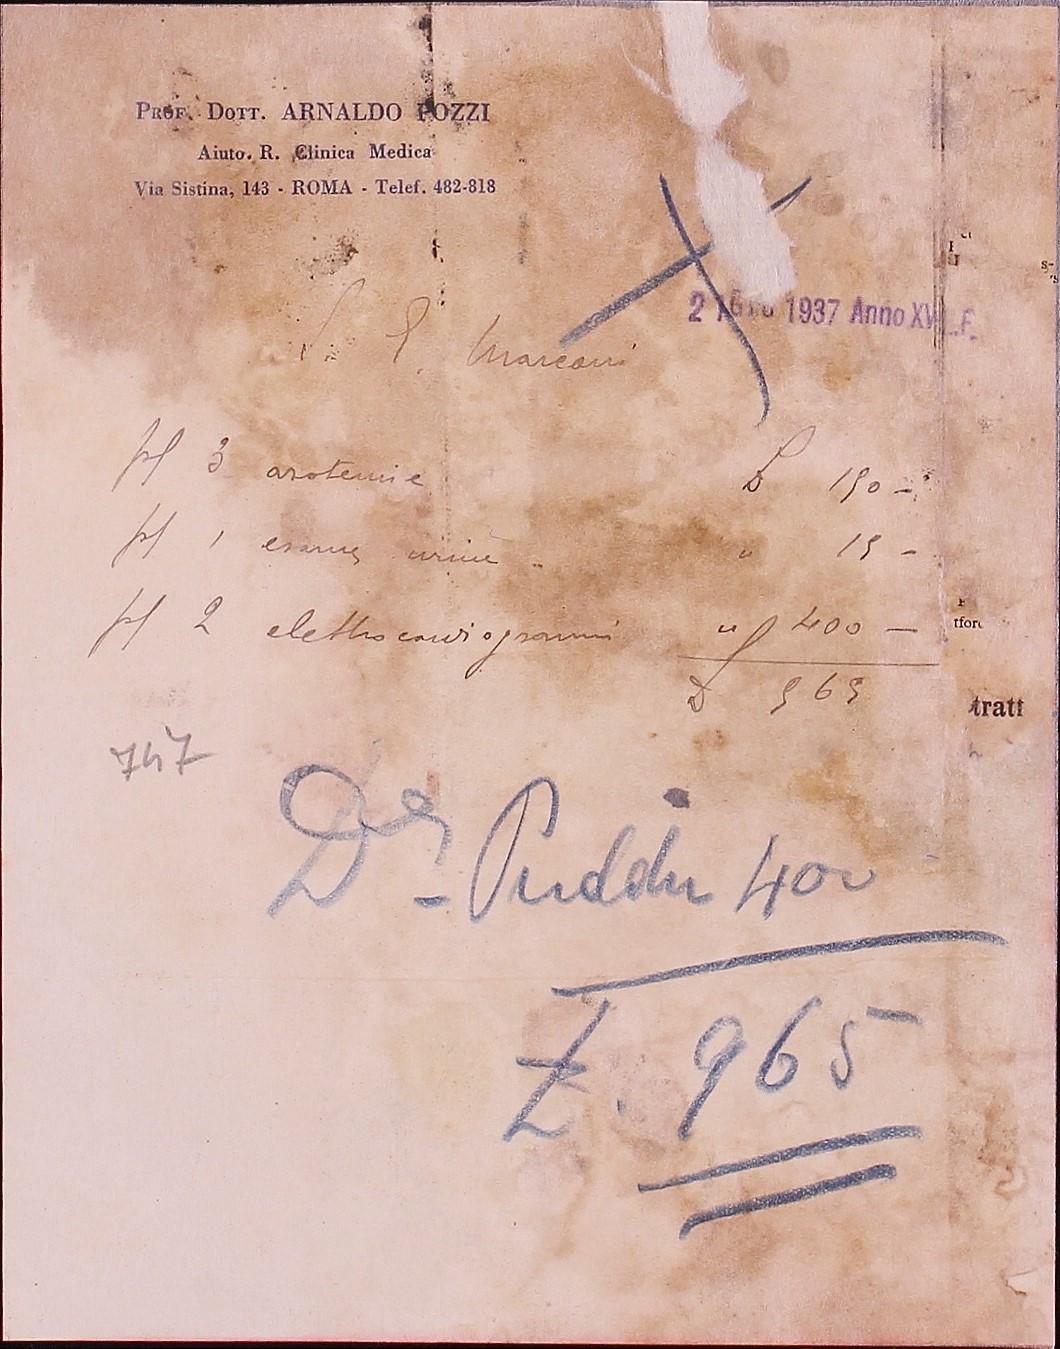 Prof. Dott. ARNALDO POZZI
Aiuto. R. Clinica Medica
Via Sistina, 143 - ROMA - Telef. 482-818
2 1937 Anno XV E.F.
S. E. Marconi
pf 3 azotemie £ 150 -
pf 1 esame urine " 15 -
pf 2 elettrocardiogrammi " 400 -
£ 565
tratt
747
Puddu 400
£. 965